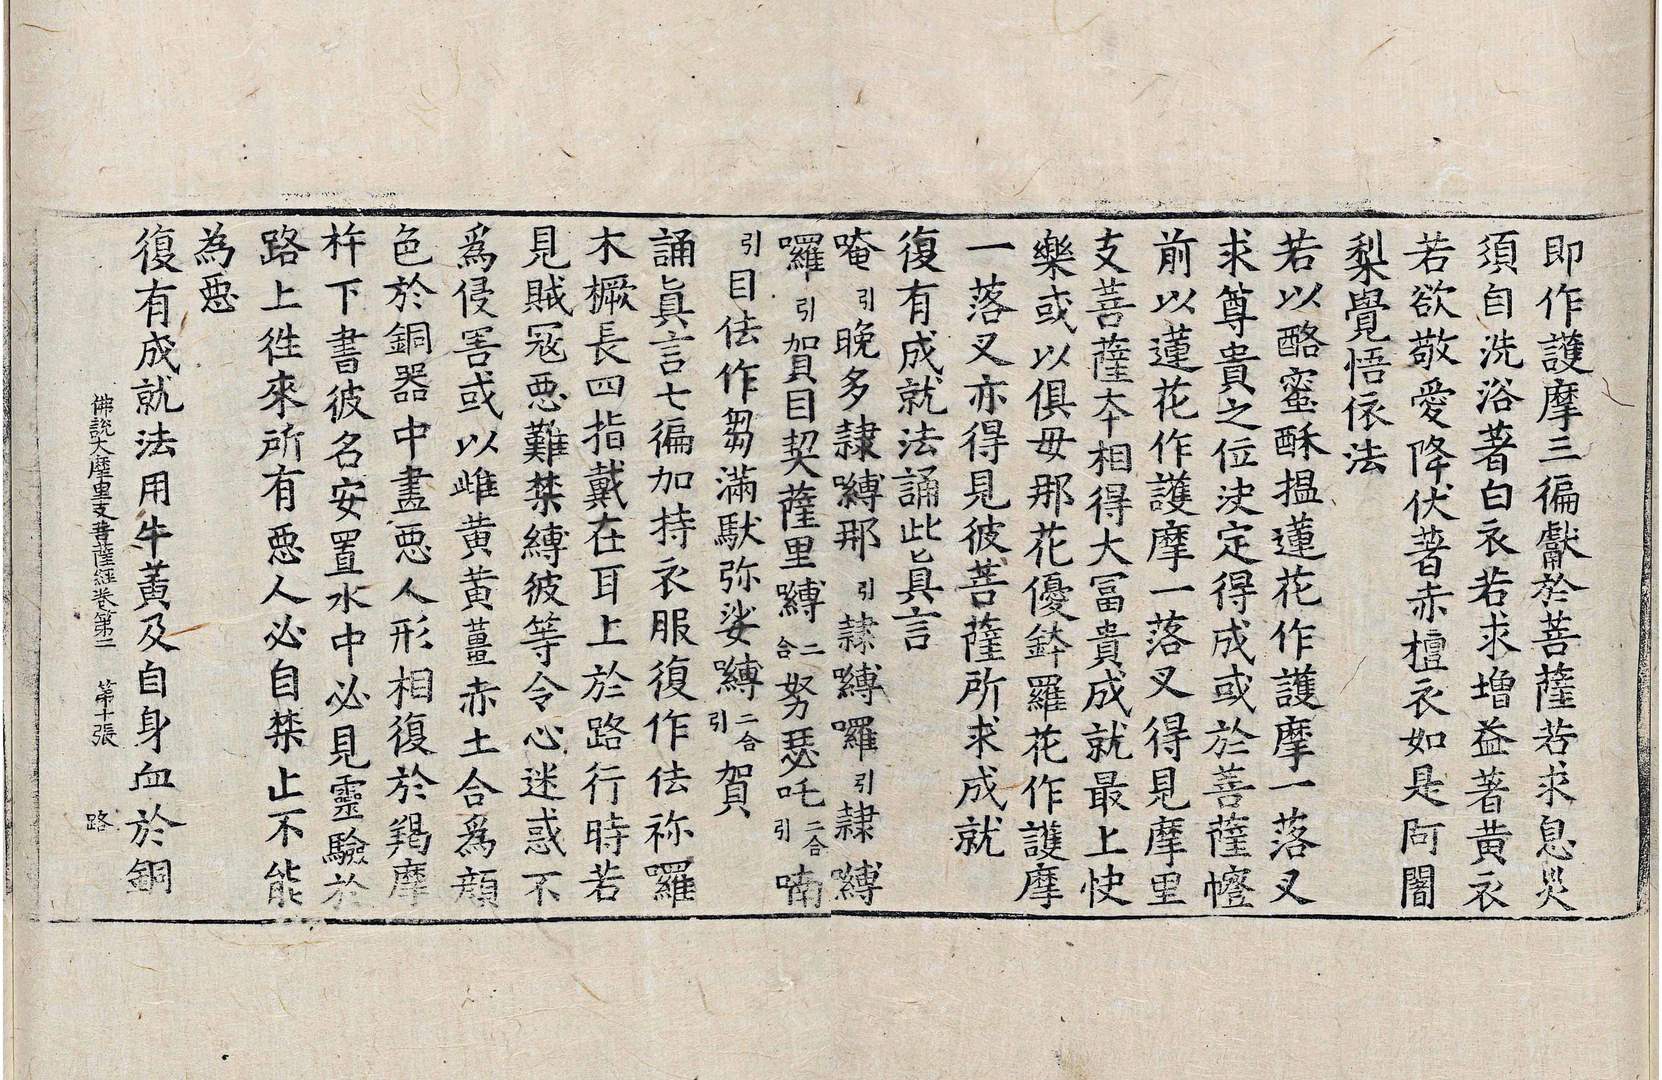 即作護摩三徧獻於菩薩若求息灾
須自洗浴著白衣若求增益著黃衣
若欲敬愛降伏著赤檀衣如是阿闍
梨覺悟依法
若以酪蜜酥搵蓮花作護摩一落叉
求尊貴之位決定得成或於菩薩幢
前以蓮花作護摩一落叉得見摩里
支菩薩夲相得大冨貴成就最上快
樂或以俱毋那花優鉢羅花作護摩
一落叉亦得見彼菩薩所求成就
復有成就法誦此眞言
唵引晚多隷嚩那引隷嚩囉引隷嚩
囉引賀目契薩里嚩二合努瑟吒二合引喃
引目佉作芻滿馱弥娑嚩二合引賀
誦眞言七徧加持衣服復作佉祢羅
木橛長四指戴在耳上於路行時若
見賊冦惡難禁縛彼等令心迷惑不
爲侵害或以雌黄黄薑赤土合爲顔
色於銅器中畫惡人形相復於羯摩
杵下書彼名安置水中必見靈驗於
路上徃來所有惡人必自禁止不能
為惡
復有成就法用牛黃及自身血於銅
佛說大摩里支菩薩經卷第二 第十張 路